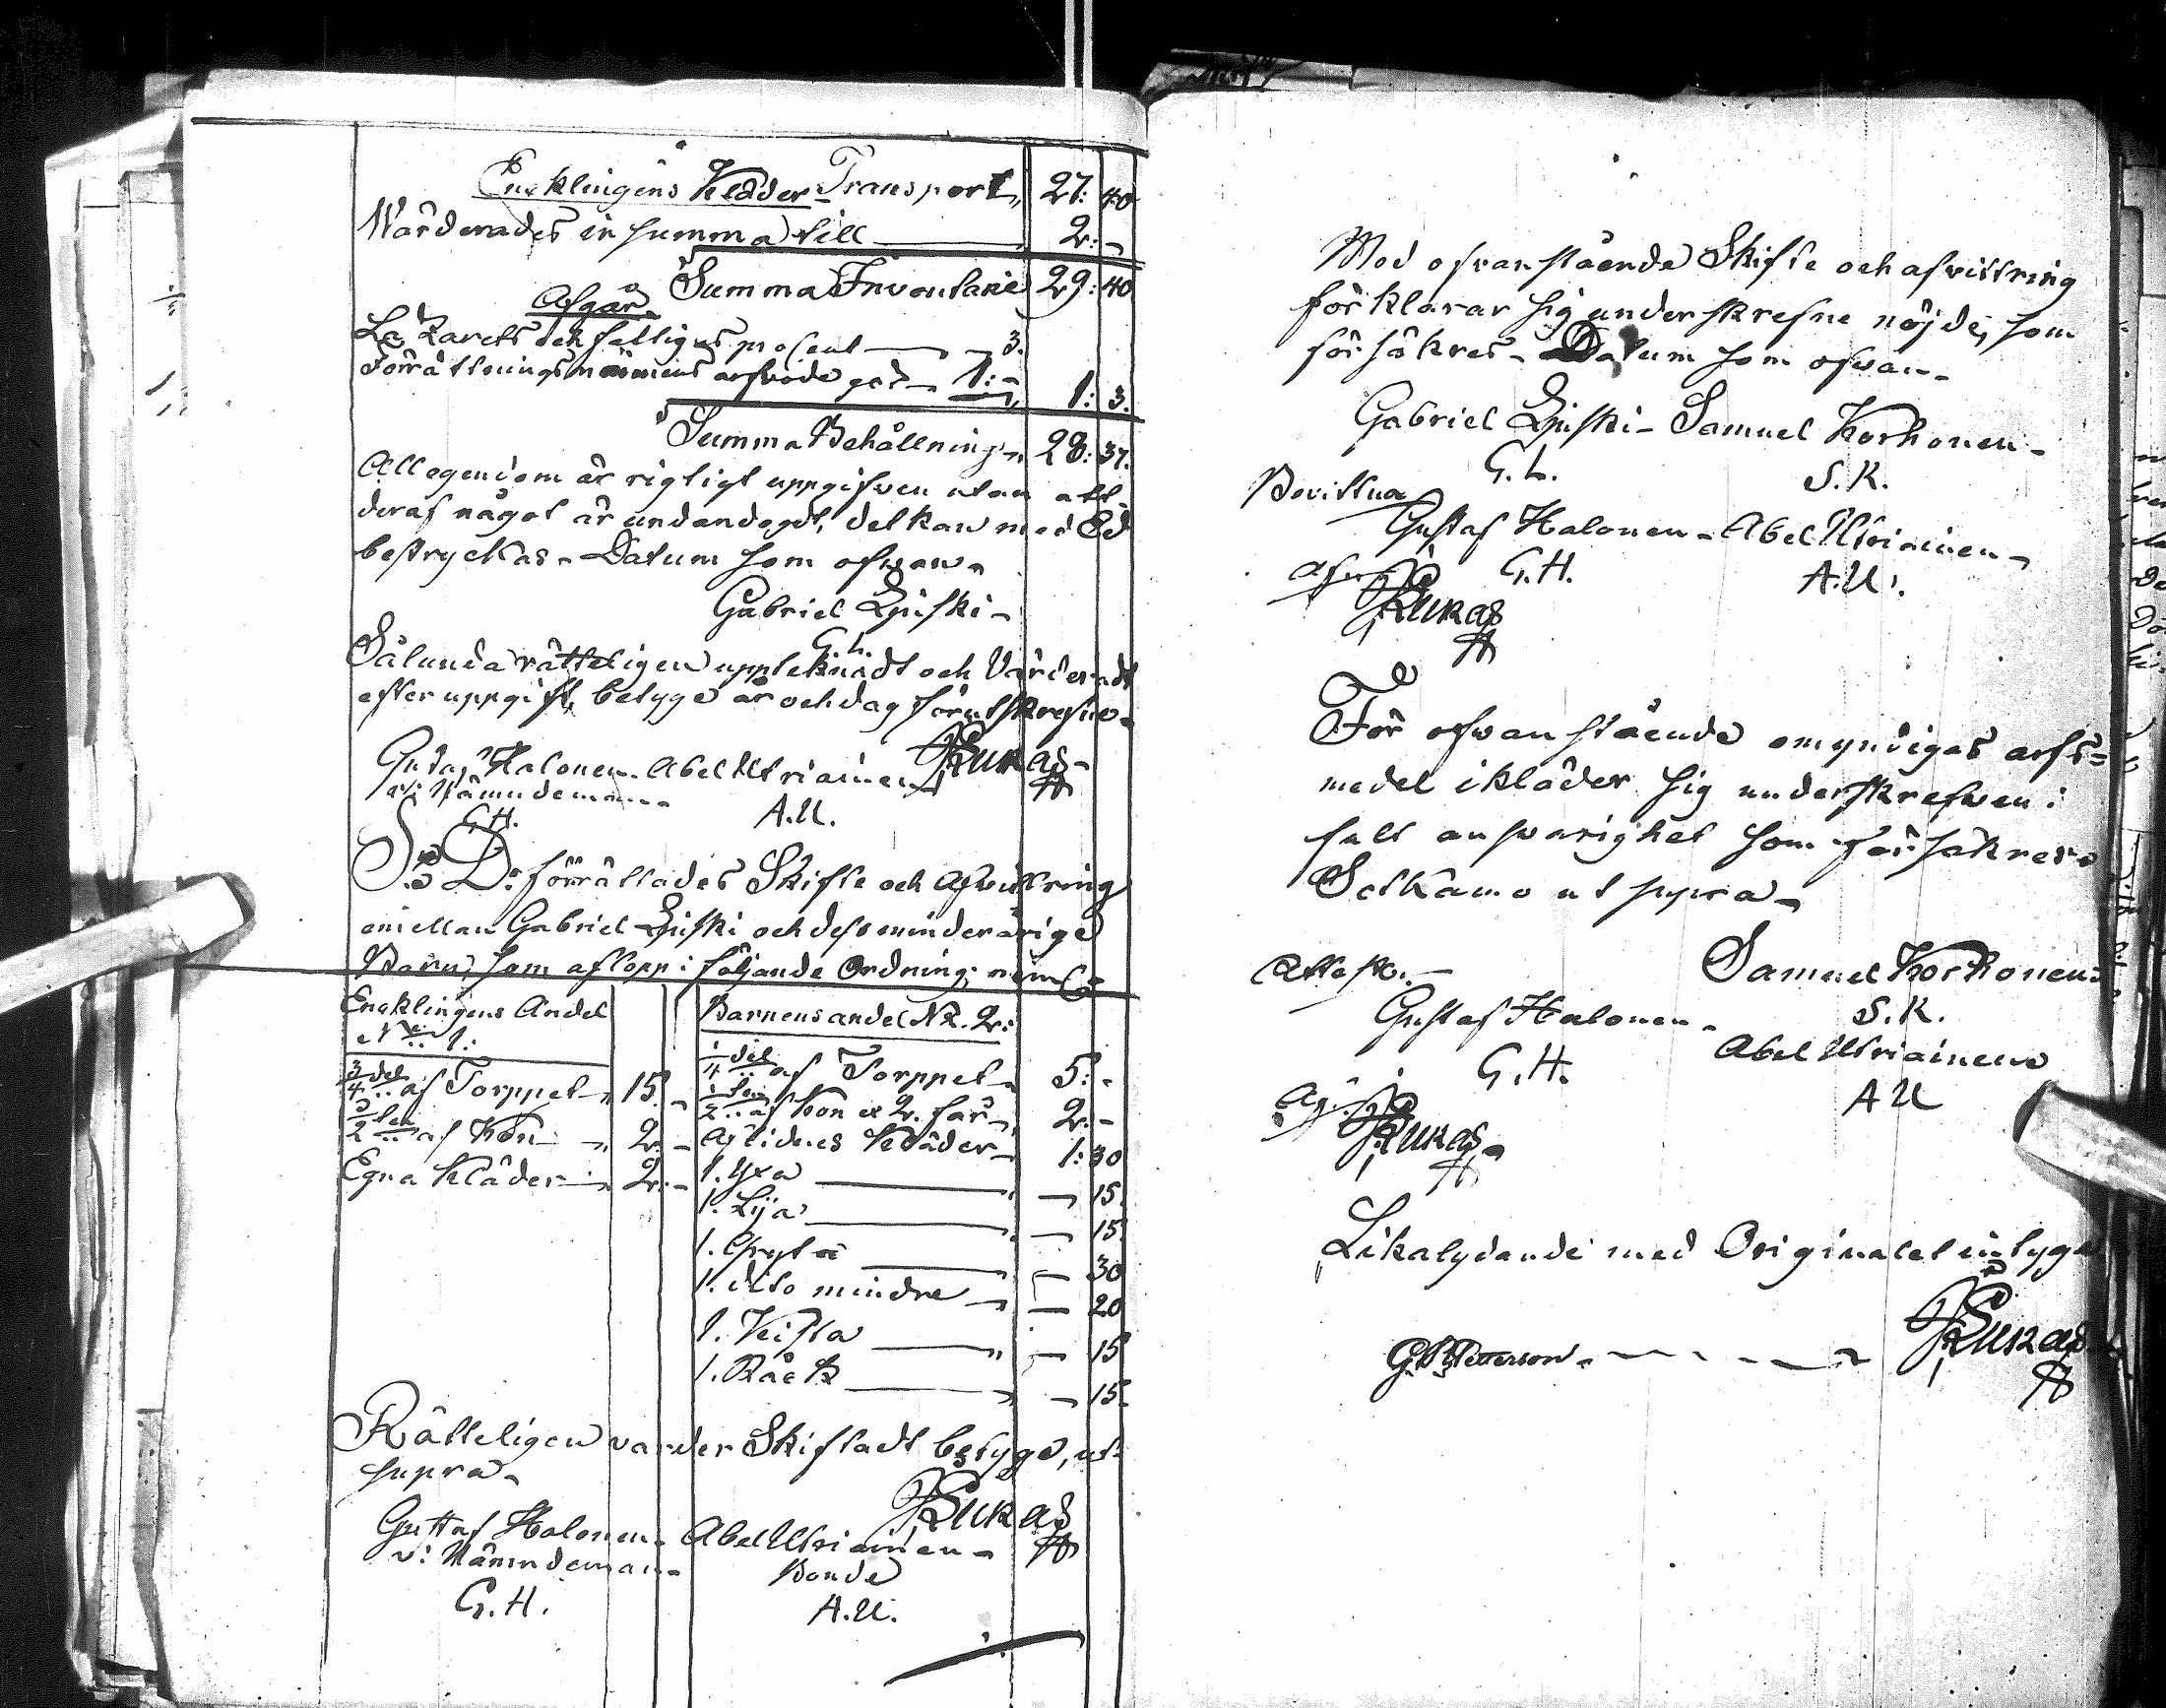 Encklingens Kläder - Transport, 27: 40
Wärderades in summa till — 2: -
Summa Inventarie 29: 40
Afgår
La Zarets och fattigas prosent — 3.
Förrättningsmännens arfvode 1: - 1: 3.
Summa Behållning 28: 37.
All egendom är rigtigt uppgifven utan att
deraf något är undandogdt, det kan med Ed
bestryckas. Datum som ofwan.
Gabriel Liuski -
G. L.
Sålunda rätteligen upptecknadt och Värderadt
efter uppgift, betyga år och dag förutskrefne.
Gustaf Halonen. Abel Utriainen
v: Nämndeman.
G. H. A. U.
S. D. förrättades Skifte och Afvittring
emellan Gabriel Liuski och dess minderårige
Barn, som aflopp i följande Ordning; neml:
Encklingens Andel
No. 1:
3/4 del af Torppet 15. -
1/2 ten af Kon 2. -
Egna Kläder 2. -
Barnens andel No. 2:
1/4 del af Torppet 5: -
1/2 ten af Kon et 2. får 2. -
Aflidnes Kläder 1: 30
1. Yxa — 15.
1. Lija — 15.
1. Gryta — 30
1. dito mindre — 20
1. Kista — 15
1. Råck — 15.
Rätteligen varder Skiftadt betyge, ut
supra.
Gustaf Halonen. Abel Utriainen.
v: Nämndeman. Bonde
G. H. A. U.
Med ofvanstående Skifte och afvittring
förklarar sig underskrefne nöjde, som
försäkres. Datum som ofvan.
Gabriel Liuski - Samuel Korhonen -
G. L. S. K.
Bevittna
Gustaf Halonen - Abel Utriainen
G. H. A. U.
För ofwanstående omyndigas arfs=
medel ikläder sig underskrefwen i
fult answarighet som försäkres
Sotkamo ut supra -
Attest. Samuel Korhonen
S. K.
Gustaf Halonen - Abel Utriainen
G. H. A U
Likalydande med Originalet intyga
Petterson